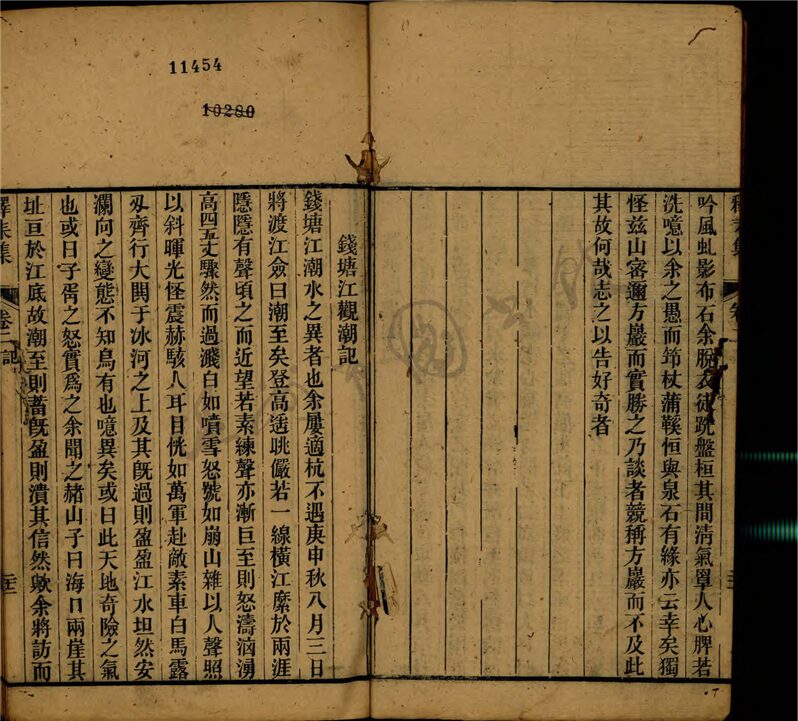 11454
10280
吟風虬影布石余脫衣徒跣盤桓其間清氣單人心脾若
洗噫以余之愚而笻杖蒲鞵恒與泉石有緣亦云幸矣獨
怪茲山密邇方巖而實勝之乃談者競稱方巖而不及此
其故何哉志之以告好奇者
錢塘江觀潮記
錢塘江潮水之異者也余屢適杭不遇庚申秋八月三日
將渡江僉曰潮至矣登高遙眺儼若一線橫江縻於兩涯
隱隱有聲頃之而近望若素練聲亦漸巨至則怒濤洶湧
高四五丈驟然而過濺白如噴雪怒號如崩山雜以人聲照
以斜暉光怪震赫駭人耳目恍如萬軍赴敵素車白馬露
刃齊行大閱于冰河之上及其旣過則盈盈江水坦然安
瀾向之變態不知烏有也噫異矣或曰此天地奇險之氣
也或曰子胥之怒實爲之余聞之赭山子曰海口兩崖其
址亘於江底故潮至則蓄旣盈則潰其信然歟余將訪而
集
卷二 記